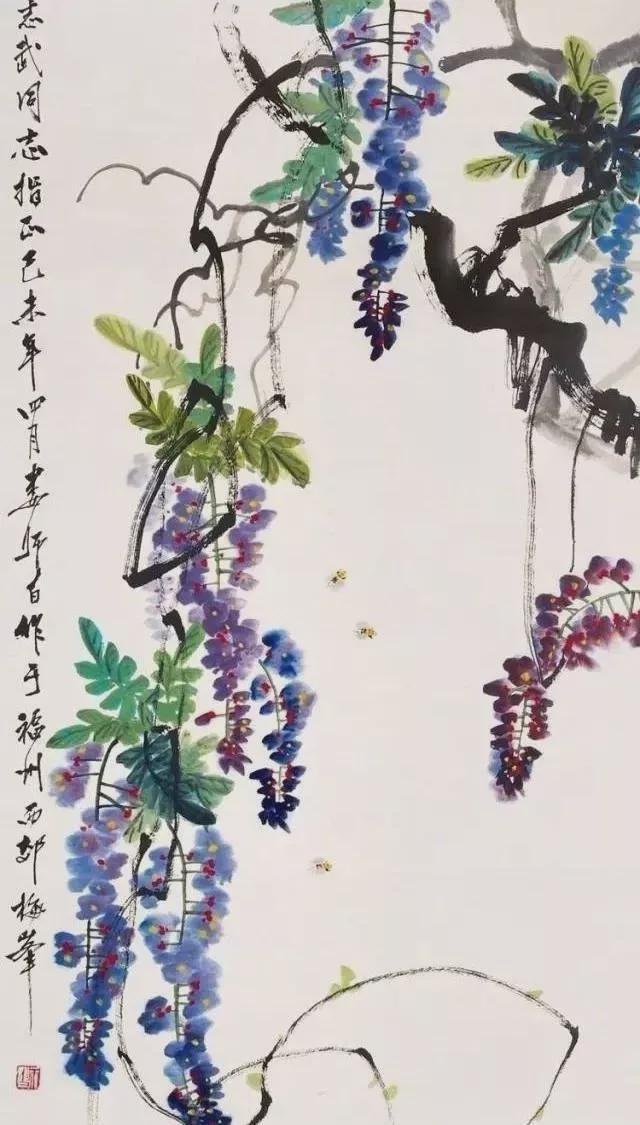 志武同志指正己未年四月娄师白作于福州西郊梅峰